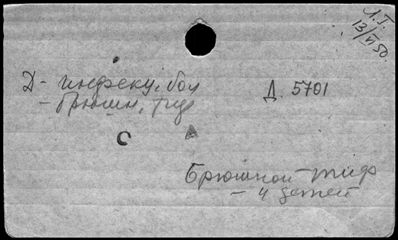 Л.Г.
13/VI 50.
Д - инфекц. бол
- Брюшн. тиф
Д. 5701
С
Брюшной тиф
- 4 детей